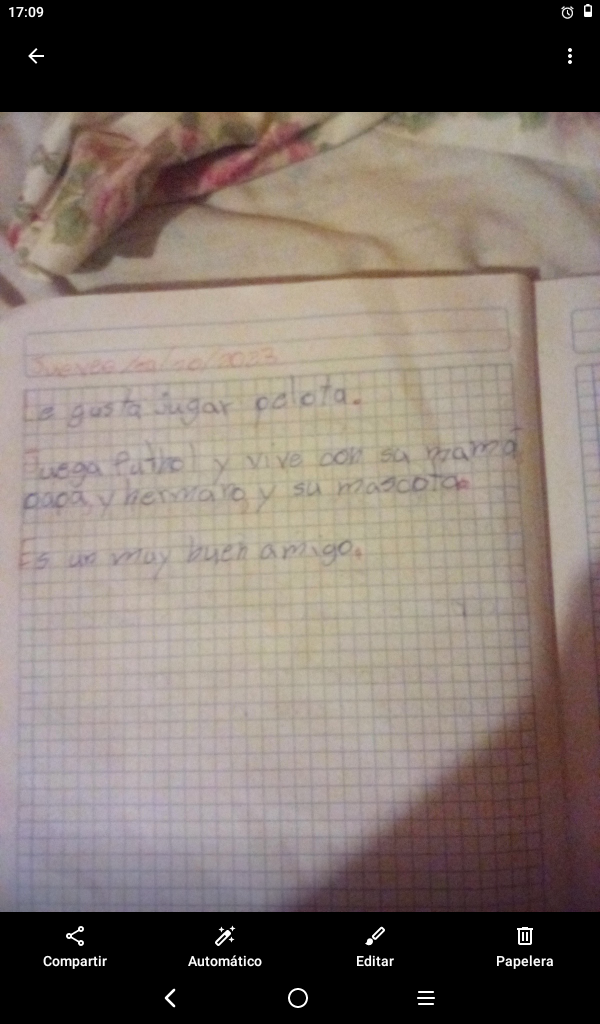 17:09
Jueves
Le gusta jugar pelota.
Juega futbol y vive con su mamá
papá y hermano y su mascota.
Es un muy buen amigo.
Compartir
Automático
Editar
Papelera